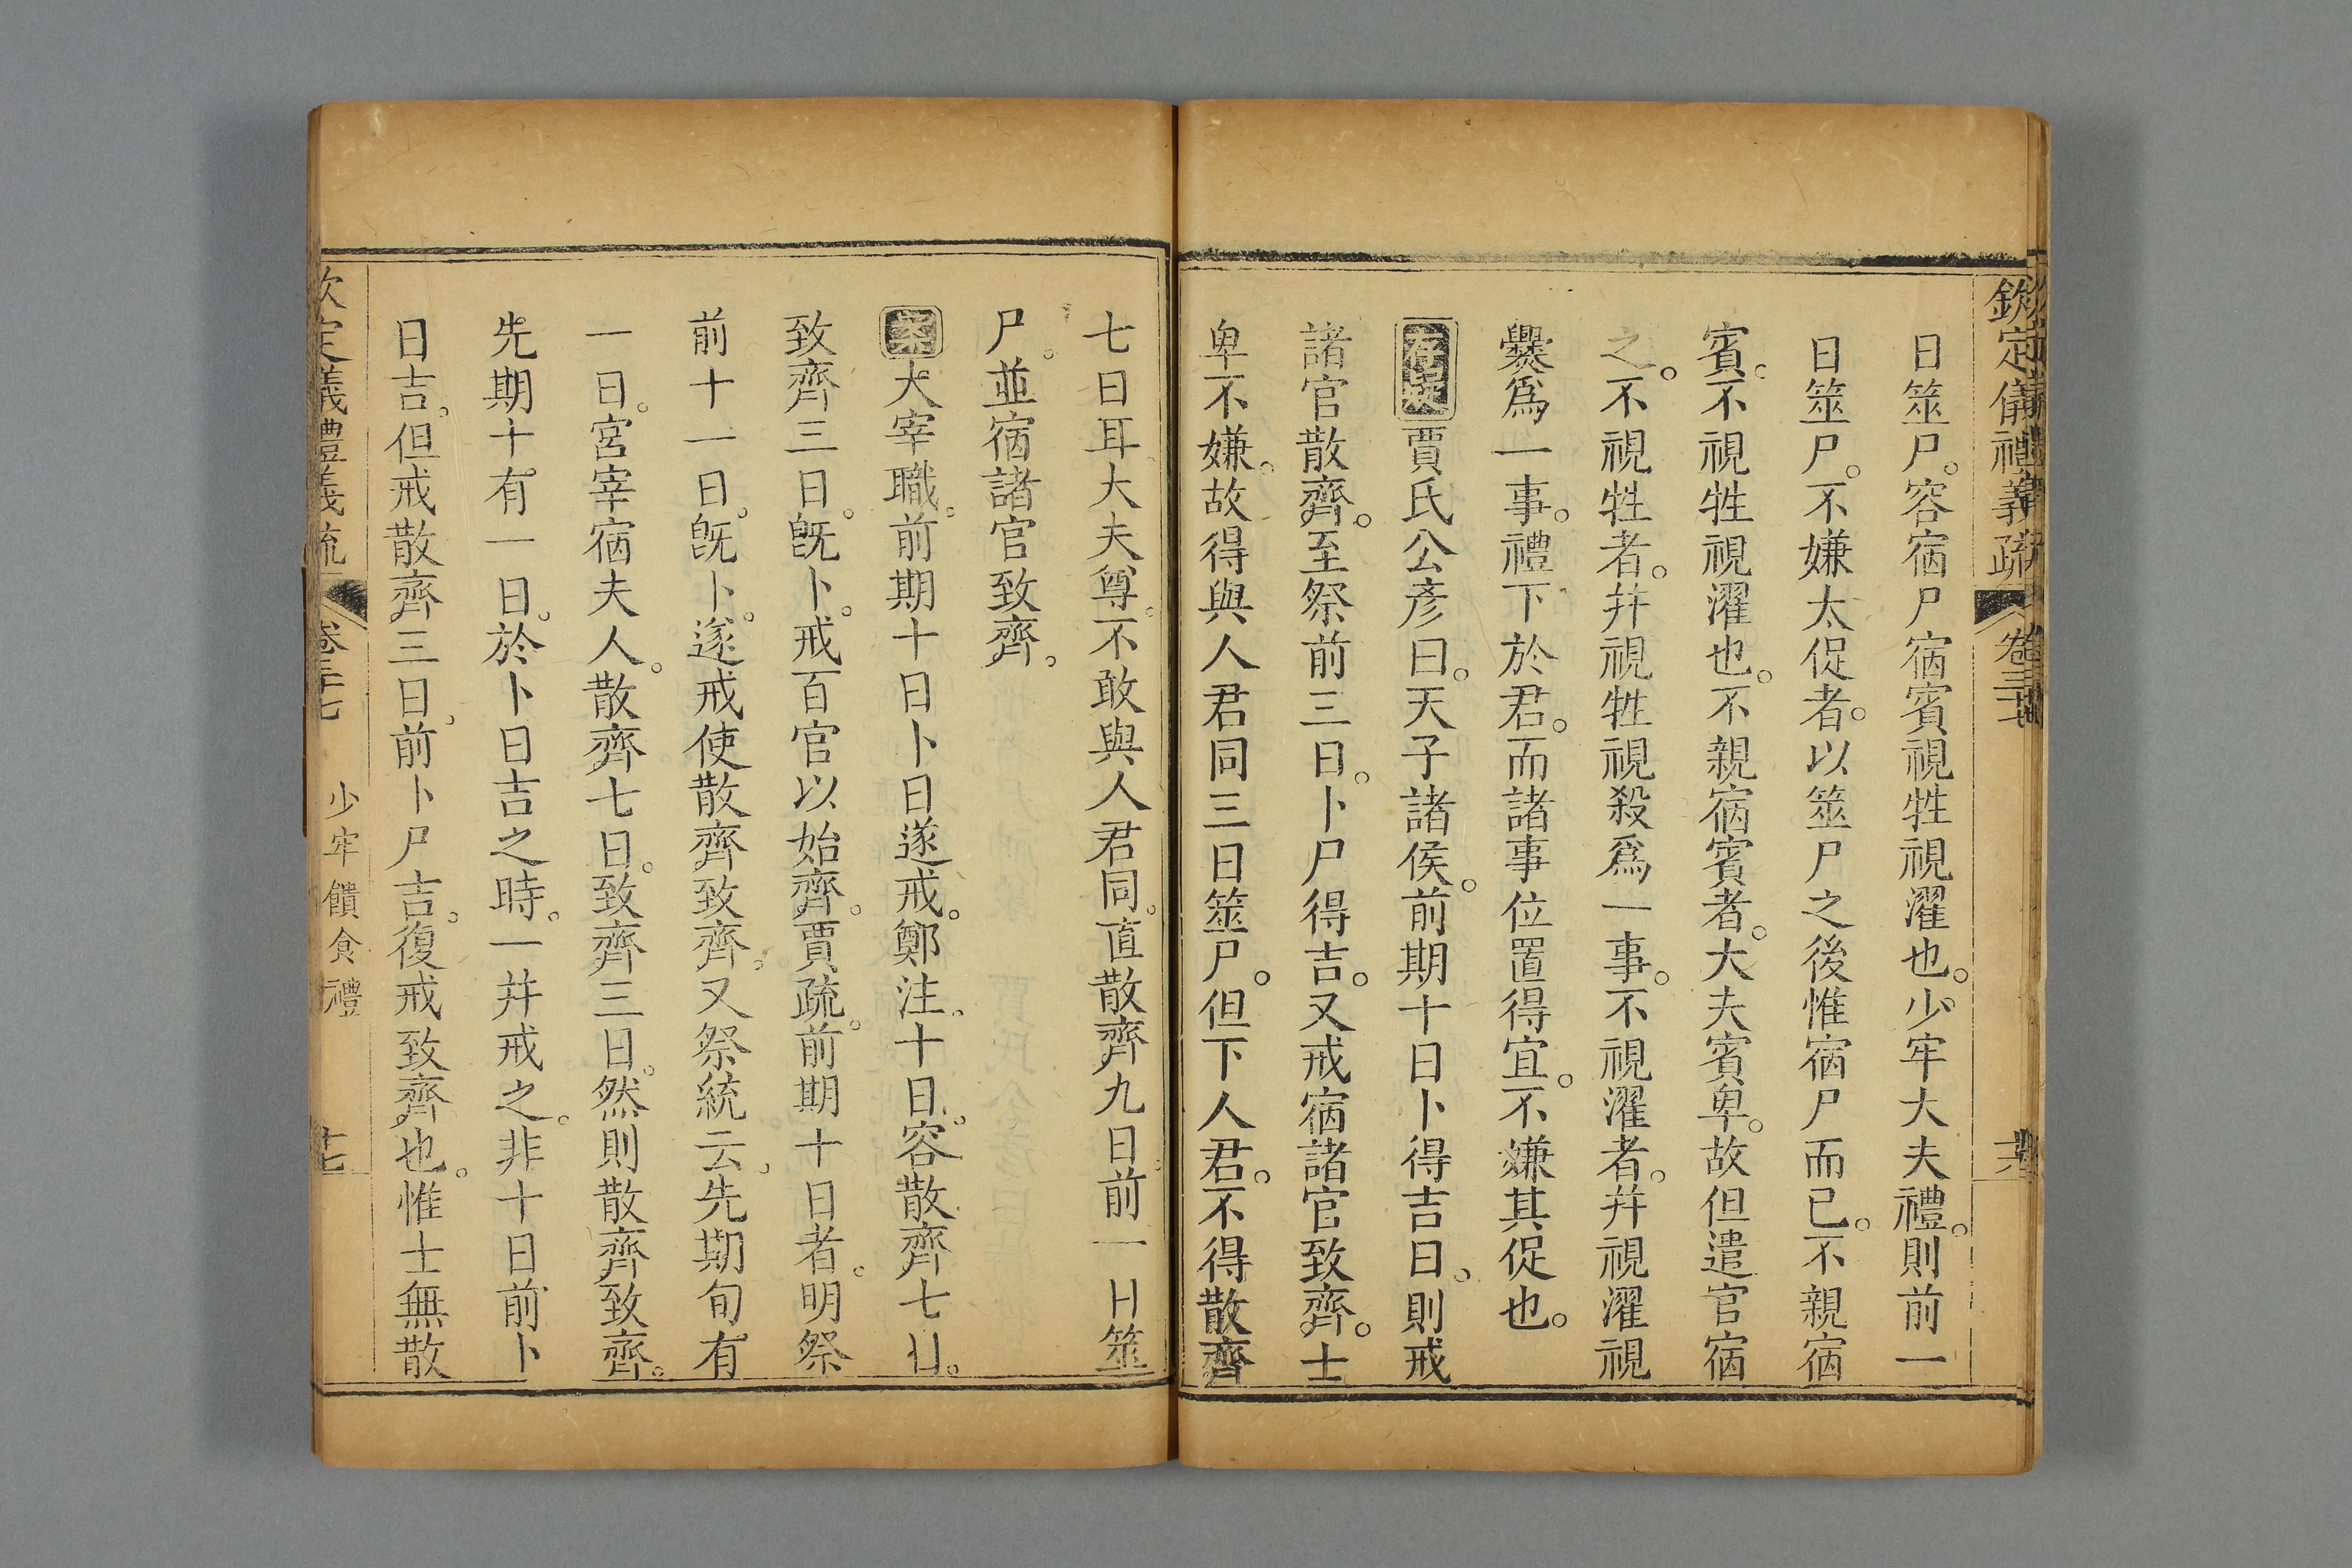 欽定儀禮義疏 卷三十七
日筮尸。容宿尸宿賓視牲視濯也。少牢大夫禮。則前一
日筮尸。不嫌太促者。以筮尸之後惟宿尸而已。不親宿
賓。不視牲視濯也。不親宿賓者。大夫賓卑。故但遣官宿
之。不視牲者。并視牲視殺爲一事。不視濯者。并視濯視
爨爲一事。禮下於君。而諸事位置得宜。不嫌其促也。
存疑賈氏公彥曰。天子諸侯。前期十日卜得吉日。則戒
諸官散齊。至祭前三日。卜尸得吉。又戒宿諸官致齊。士
卑不嫌。故得與人君同三日筮尸。但下人君。不得散齊
七日耳大夫尊。不敢與人君同。直散齊九日前一日筮
尸。並宿諸官致齊。
案大宰職。前期十日卜日遂戒。鄭注。十日。容散齊七日。
致齊三日。既卜。戒百官以始齊。賈疏。前期十日者。明祭
前十一日。既卜。遂戒使散齊致齊。又祭統云。先期旬有
一日。宮宰宿夫人。散齊七日。致齊三日。然則散齊致齊。
先期十有一日。於卜日吉之時。一并戒之。非十日前卜
日吉。但戒散齊三日。前卜尸吉。復戒致齊也。惟士無散
欽定儀禮義疏 卷三十七 少牢饋食禮 十七